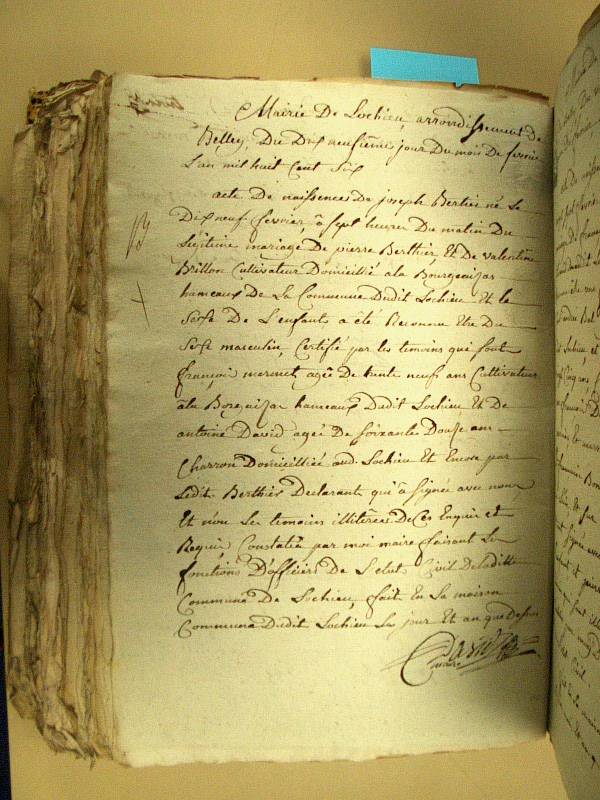 Mairie De Lochieu, arrondissement De
Belley, Du Dix neufième jour Du mois De fevrier
L'an mil huit Cent Six
acte De naissence De joseph Bertier né le
Dix neuf fevrier, à sept heures Du matin Du
Legitime mariage De pierre Berthier, Et De valentine
Brillon Cultivateur Domicillié àla
hameaux De La Commune Dudit Lochieu Et le
Sexse De L'enfant a été Reconnu Etre Du
Sexse masculin, Certifié par les temoins qui sont
françois mermet agée De trente neuf ans Cultivateur
àla hameaux Dudit Lochieu Et De
antoine David agée De soixante Douze ans
Charron Domicilliée aud. Lochieu Et Encore par
Ledit Berthier Declarant qui à signée avec nous
Et non Les temoins illiterées De Ces Enquis et
Requis, Constatée par moi maire faisant les
fonctions D'officier De L'etat Civil Deladitte
Commune De Lochieu, fait En la maison
Commune Dudit Lochieu Les jour Et an que Dessus
maire